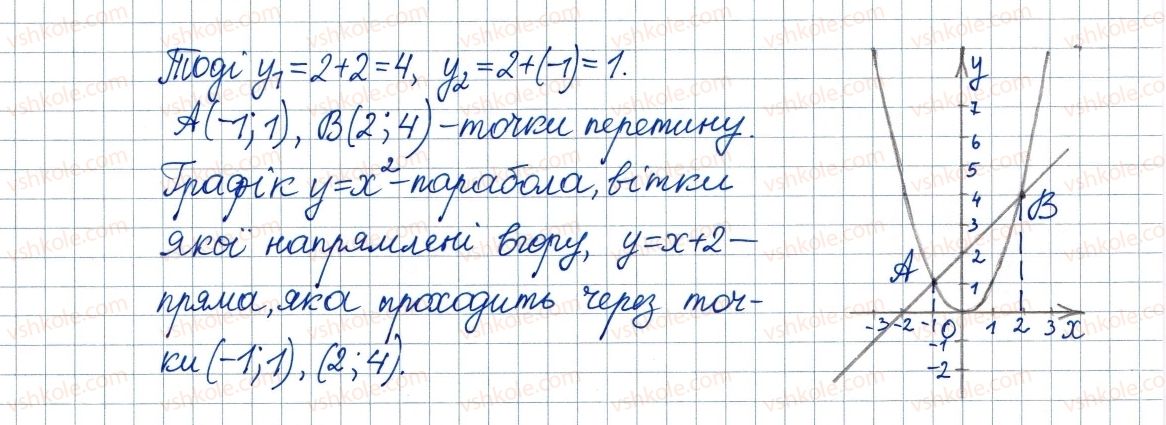 Тоді y₁=2+2=4, y₂=2+(-1)=1.
A(-1;1), B(2;4)-точки перетину.
Графік y=x²-парабола, вітки
якої напрямлені вгору, y=x+2—
пряма, яка проходить через точ-
ки (-1;1), (2;4).
y
7
6
5
4
B
3
2
A
1
-3 -2 -1 0 1 2 3 x
-1
-2